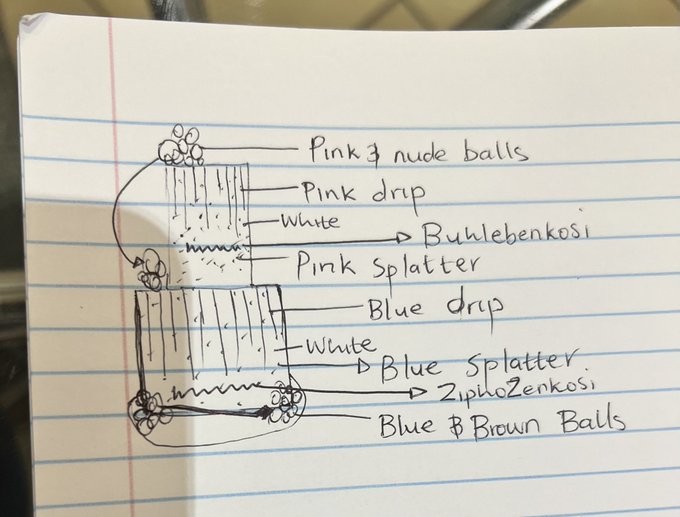 Pink & nude balls
Pink drip
White
Buhlebenkosi
Pink splatter
Blue drip
White
Blue Splatter
ZiphoZenkosi
Blue & Brown Balls